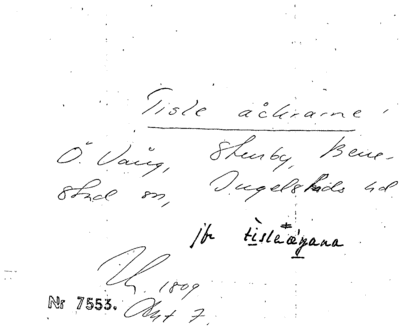 Tisle åkrarne
Ö. Vång, Stenby, Bene-
stad sn, Ingelstads hd
jfr tisleågana
1809
Akt 7.
Nr 7553.